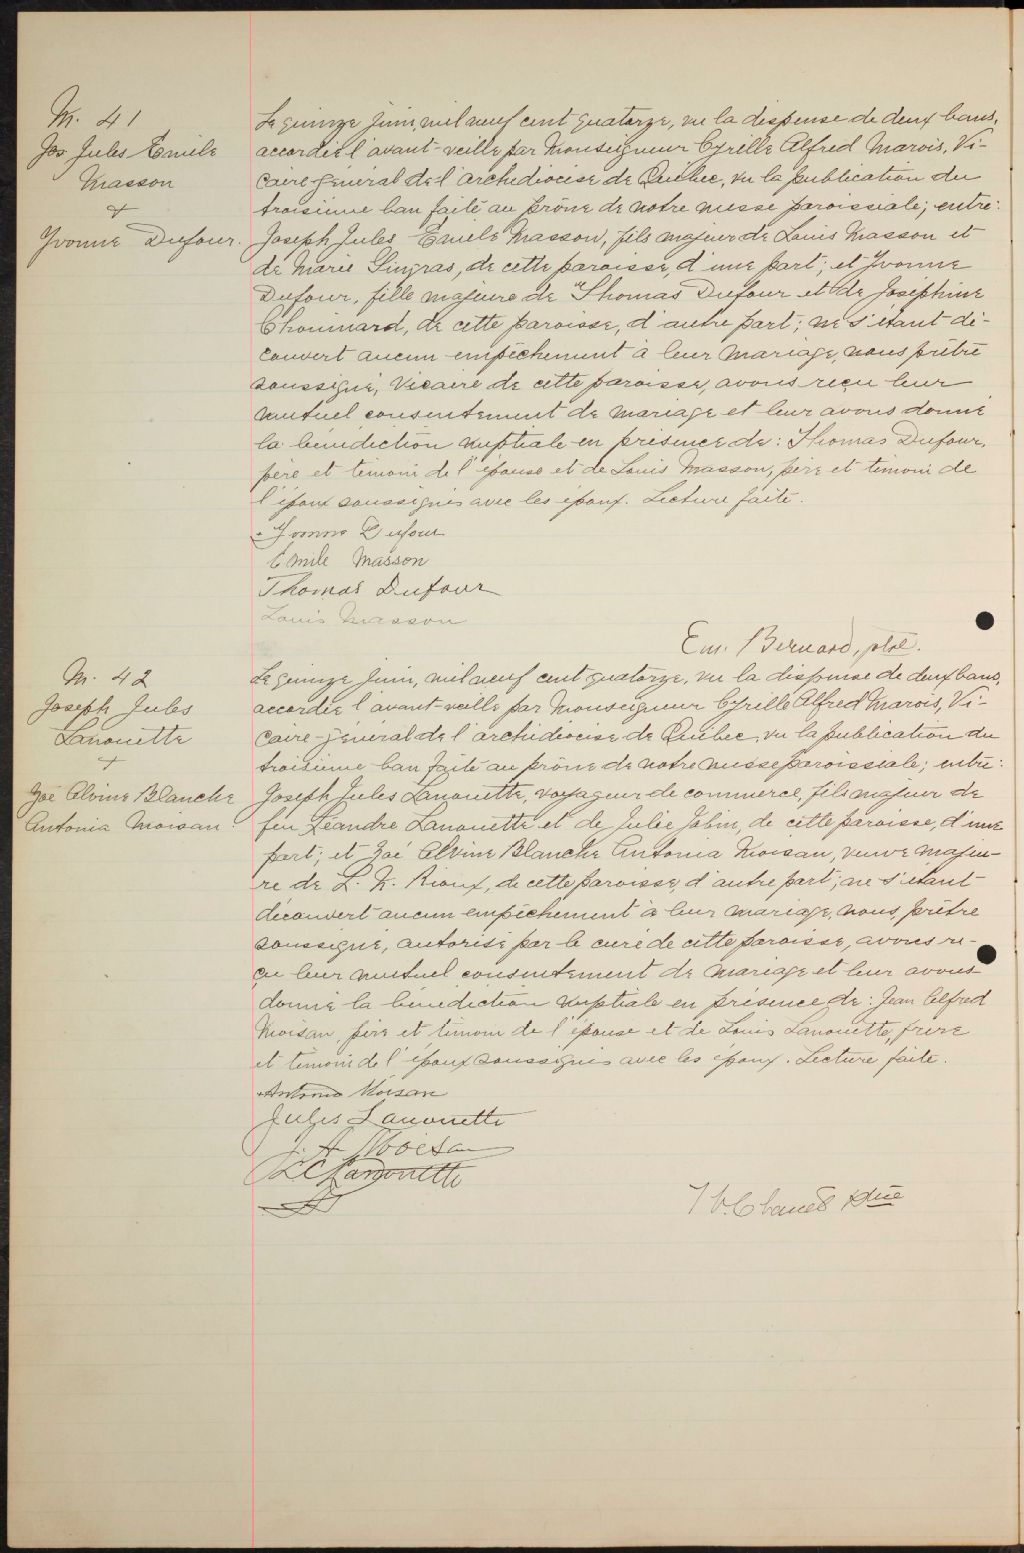 M. 41
Jos Jules Emile
Masson
+
Yvonne Dufour.
Le quinze juin, mil neuf cent quatorze, vu la dispense de deux bans,
accordée l'avant-veille par Monseigneur Cyrille Alfred Marois, Vi-
caire-général de l'archidiocèse de Québec, vu la publication du
troisième ban faite au prône de notre messe paroissiale; entre:
Joseph Jules Emile Masson, fils majeur de Louis Masson et
de Marie Gingras, de cette paroisse, d'une part; et Yvonne
Dufour, fille majeure de Thomas Dufour et de Joséphine
Chouinard, de cette paroisse, d'autre part; ne s'étant dé-
couvert aucun empêchement à leur mariage, nous prêtre
soussigné, Vicaire de cette paroisse, avons reçu leur
mutuel consentement de mariage et leur avons donné
la bénédiction nuptiale en présence de: Thomas Dufour,
père et témoin de l'épouse et de Louis Masson, père et témoin de
l'époux soussignés avec les époux. Lecture faite.
Yvonne Dufour
Emile Masson
Thomas Dufour
Louis Masson
Em. Bernard, ptre.
M. 42
Joseph Jules
Lanouette
+
Zoé Alvine Blanche
Antonia Moisan.
Le quinze juin, mil neuf cent quatorze, vu la dispense de deux bans,
accordée l'avant-veille par Monseigneur Cyrille Alfred Marois, Vi-
caire-général de l'archidiocèse de Québec, vu la publication du
troisième ban faite au prône de notre messe paroissiale; entre:
Joseph Jules Lanouette, voyageur de commerce, fils majeur de
feu Léandre Lanouette et de Julie Jobin, de cette paroisse, d'une
part; et Zoé Alvine Blanche Antonia Moisan, veuve majeu-
re de L. N. Rioux, de cette paroisse, d'autre part; ne s'étant
découvert aucun empêchement à leur mariage, nous, prêtre
soussigné, autorisé par le curé de cette paroisse, avons re-
çu leur mutuel consentement de mariage et leur avons
donné la bénédiction nuptiale en présence de: Jean Alfred
Moisan, père et témoin de l'épouse et de Louis Lanouette, frère
et témoin de l'époux soussignés avec les époux. Lecture faite.
Antonia Moisan
Jules Lanouette
J. A. Moisan
L C Lanouette
ptre